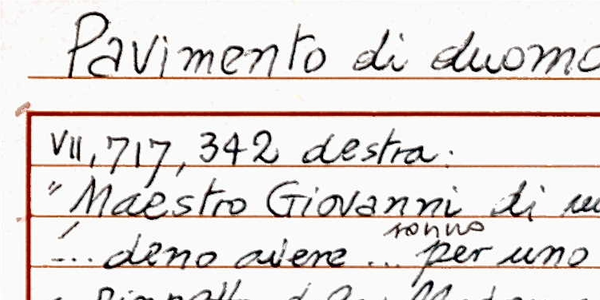 Pavimento di duomo
VII, 717, 342 destra:
"Maestro Giovanni di
sonno
... deno avere ... per uno